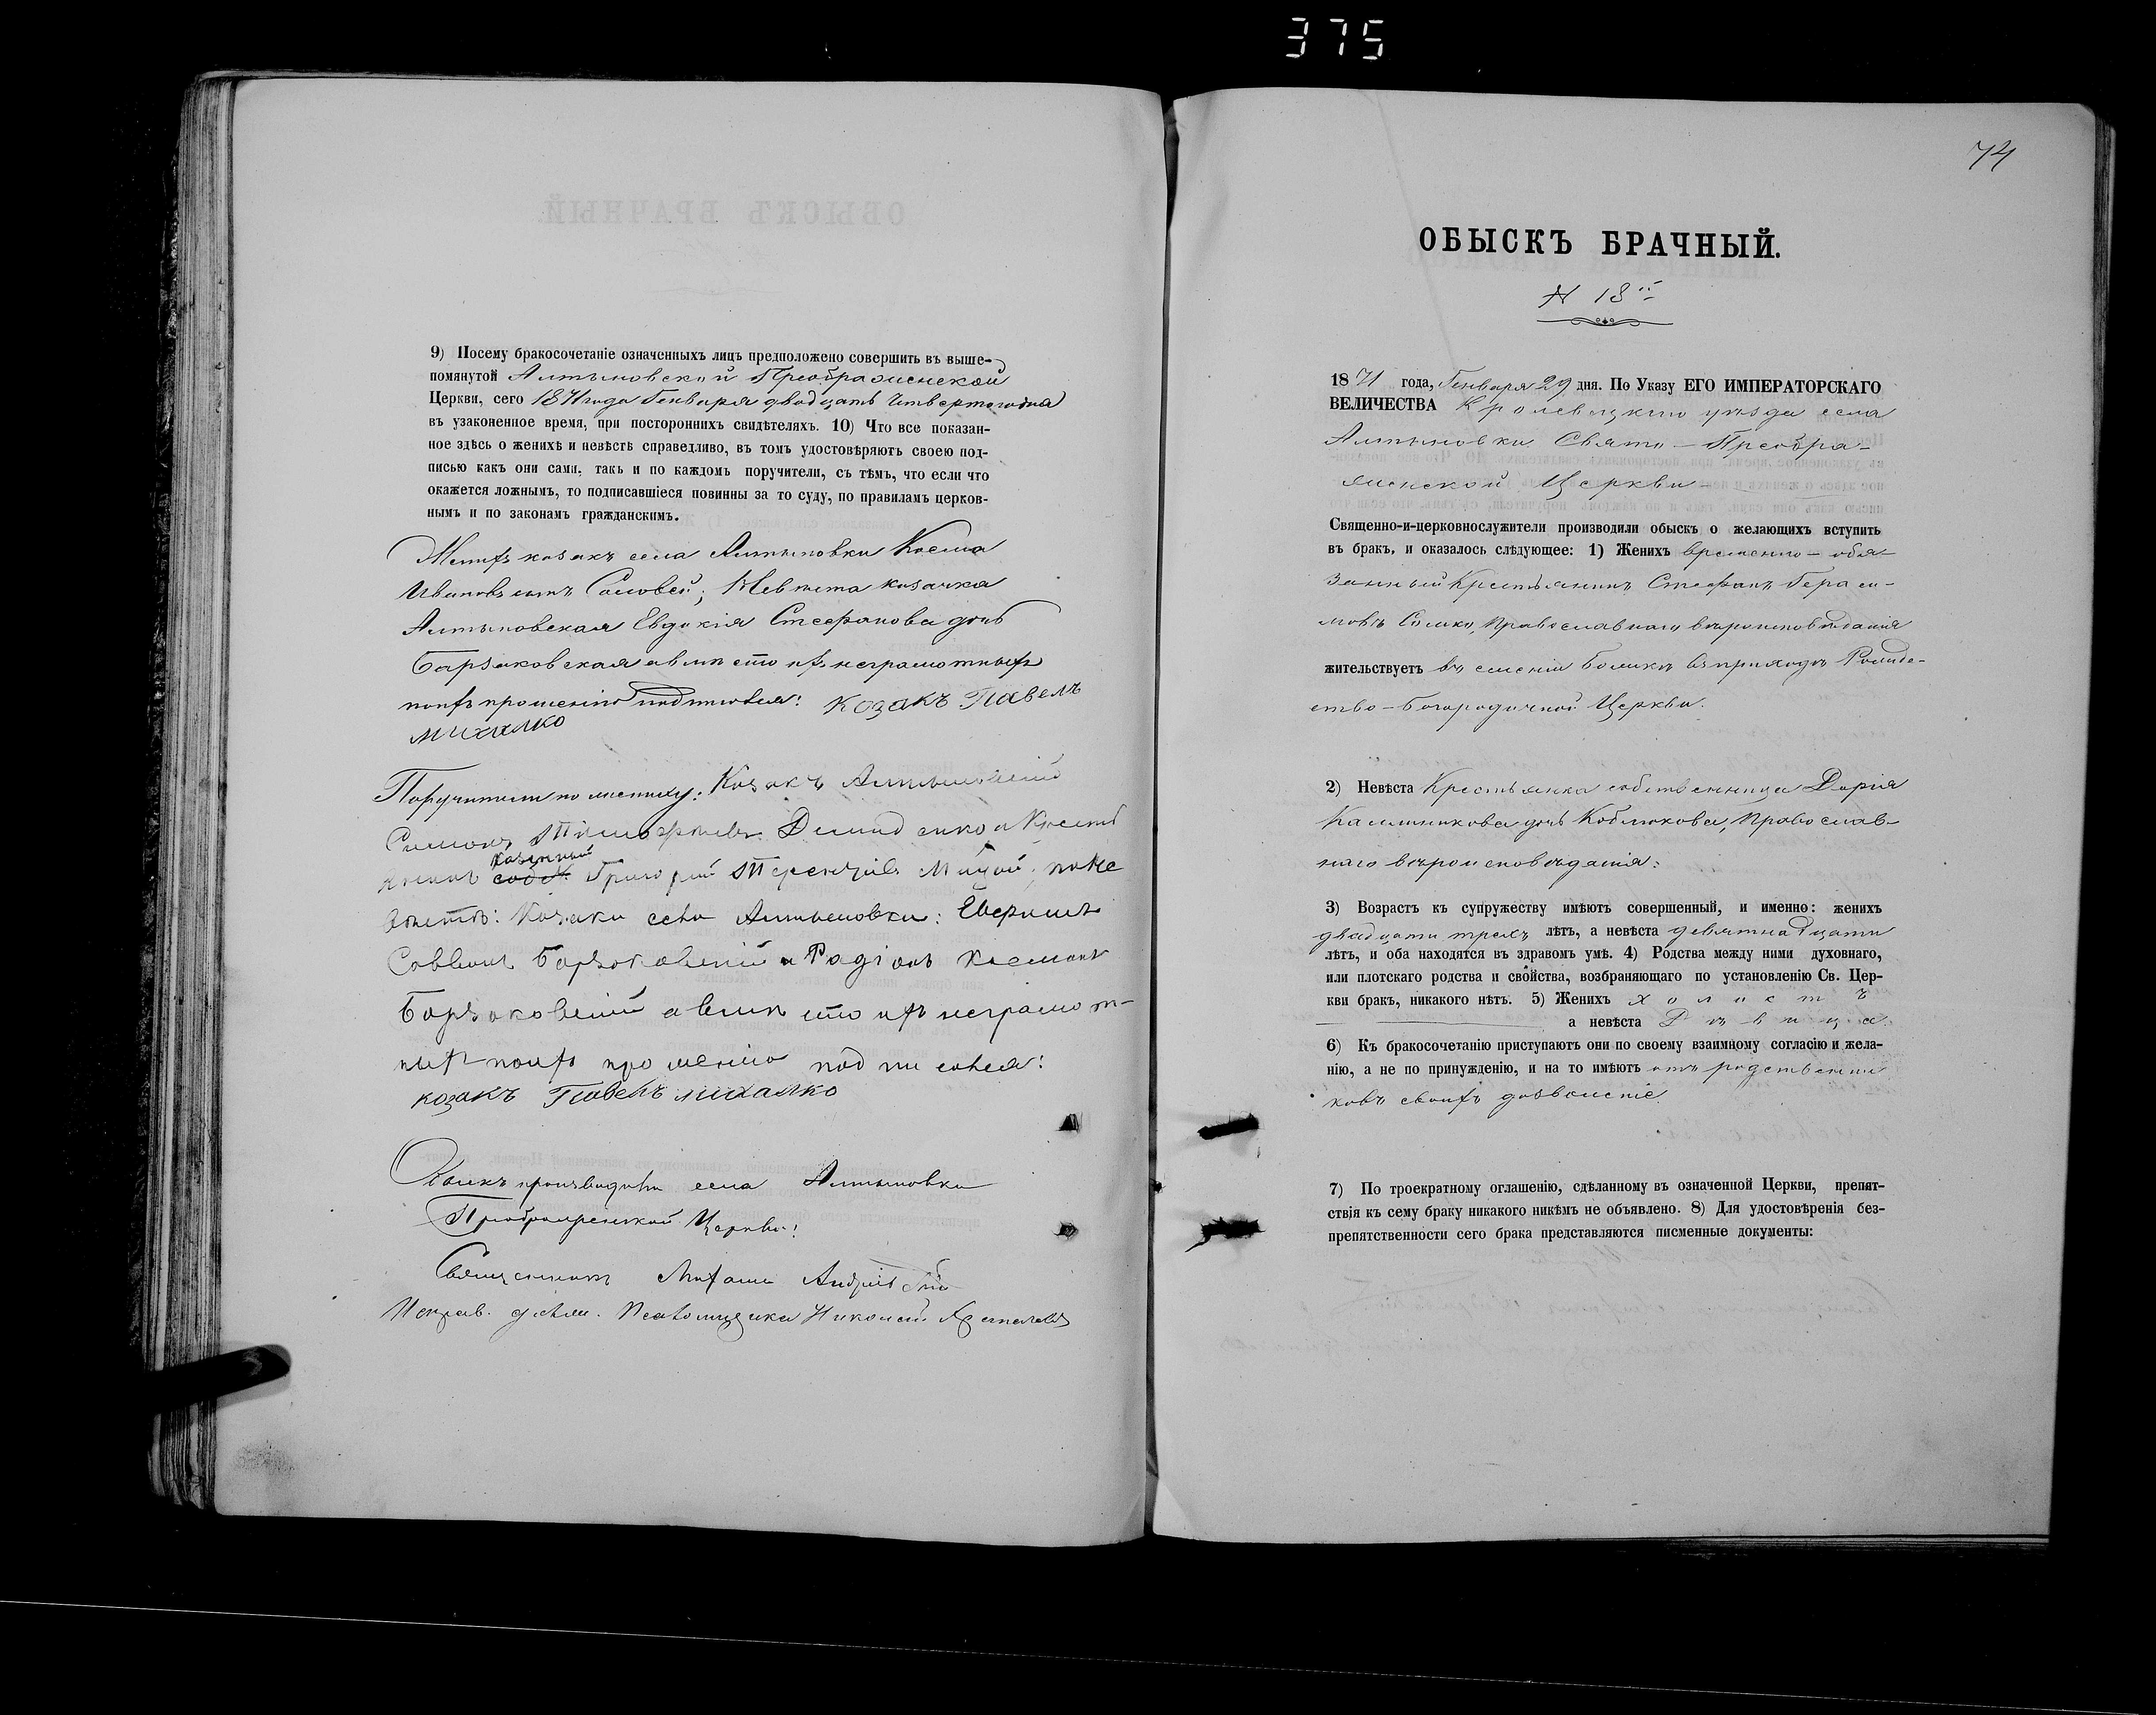 375
9) Посему бракосочетаніе означенныхъ лицъ предположено совершить въ выше-
помянутой Алтыновской Преображенской
Церкви, сего 1871 года Генваря двадцать четвертого дня
въ узаконенное время, при постороннихъ свидѣтеляхъ. 10) Что все показан-
ное здѣсь о женихѣ и невѣстѣ справедливо, въ томъ удостовѣряютъ своею под-
писью какъ они сами, такъ и по каждомъ поручители, съ тѣмъ, что если что
окажется ложнымъ, то подписавшіеся повинны за то суду, по правиламъ церков-
нымъ и по законамъ гражданскимъ.
Женихъ козакъ села Алтыновки Косма
Ивановъ сынъ Соловей; Невѣста козачка
Алтыновская Евдокія Стефанова дочь
Борзаковская а вмѣсто ихъ неграмотныхъ
по ихъ прошенію подписался: козакъ Павелъ
михалко
Поручители по жениху: Козакъ Алтыновскій
Симонъ Тимофѣевъ Демиденко и Крестья
козенный
Григорій Терентіевъ по не
вѣстѣ: Козаки села Алтыновки:
Борзаковскій и Радіонъ Космовъ
Борзаковскій а вмѣсто ихъ неграмот-
ныхъ по ихъ прошенію подписался:
козакъ Павелъ михалко
Обыскъ производили села Алтыновки
Преображенской Церкви:
Священникъ Андріевскій
Исправ. должн. Псаломщика Николай
74
ОБЫСКЪ БРАЧНЫЙ.
N 18й
1871 года, Генваря 29 дня. По Указу ЕГО ИМПЕРАТОРСКАГО
ВЕЛИЧЕСТВА Кролевецкаго уѣзда села
Алтыновки Свято-Преобра-
женской Церкви
Священно-и-церковнослужители производили обыскъ о желающихъ вступить
въ бракъ, и оказалось слѣдующее: 1) Женихъ временно-обя-
занный Крестьянинъ Стефанъ Гераси-
мовъ Православнаго вѣроисповѣданія
жительствуетъ въ селеніи въ приходѣ Рожде-
ство-Богородичной Церкви.
2) Невѣста Крестьянка собственница Дарія
Каллиникова дочь Коблюкова, Православ-
наго вѣроисповѣданія:
3) Возрастъ къ супружеству имѣютъ совершенный, и именно: женихъ
двадцати трехъ лѣтъ, а невѣста девятнадцати
лѣтъ, и оба находятся въ здравомъ умѣ. 4) Родства между ними духовнаго,
или плотскаго родства и свойства, возбраняющаго по установленію Св. Цер-
кви бракъ, никакого нѣтъ. 5) Женихъ холостъ
а невѣста Дѣвица.
6) Къ бракосочетанію приступаютъ они по своему взаимному согласію и жела-
нію, а не по принужденію, и на то имѣютъ отъ родственни
ковъ своихъ дозволеніе.
7) По троекратному оглашенію, сдѣланному въ означенной Церкви, препят-
ствія къ сему браку никакого никѣмъ не объявлено. 8) Для удостовѣренія без-
препятственности сего брака представляются писменные документы: